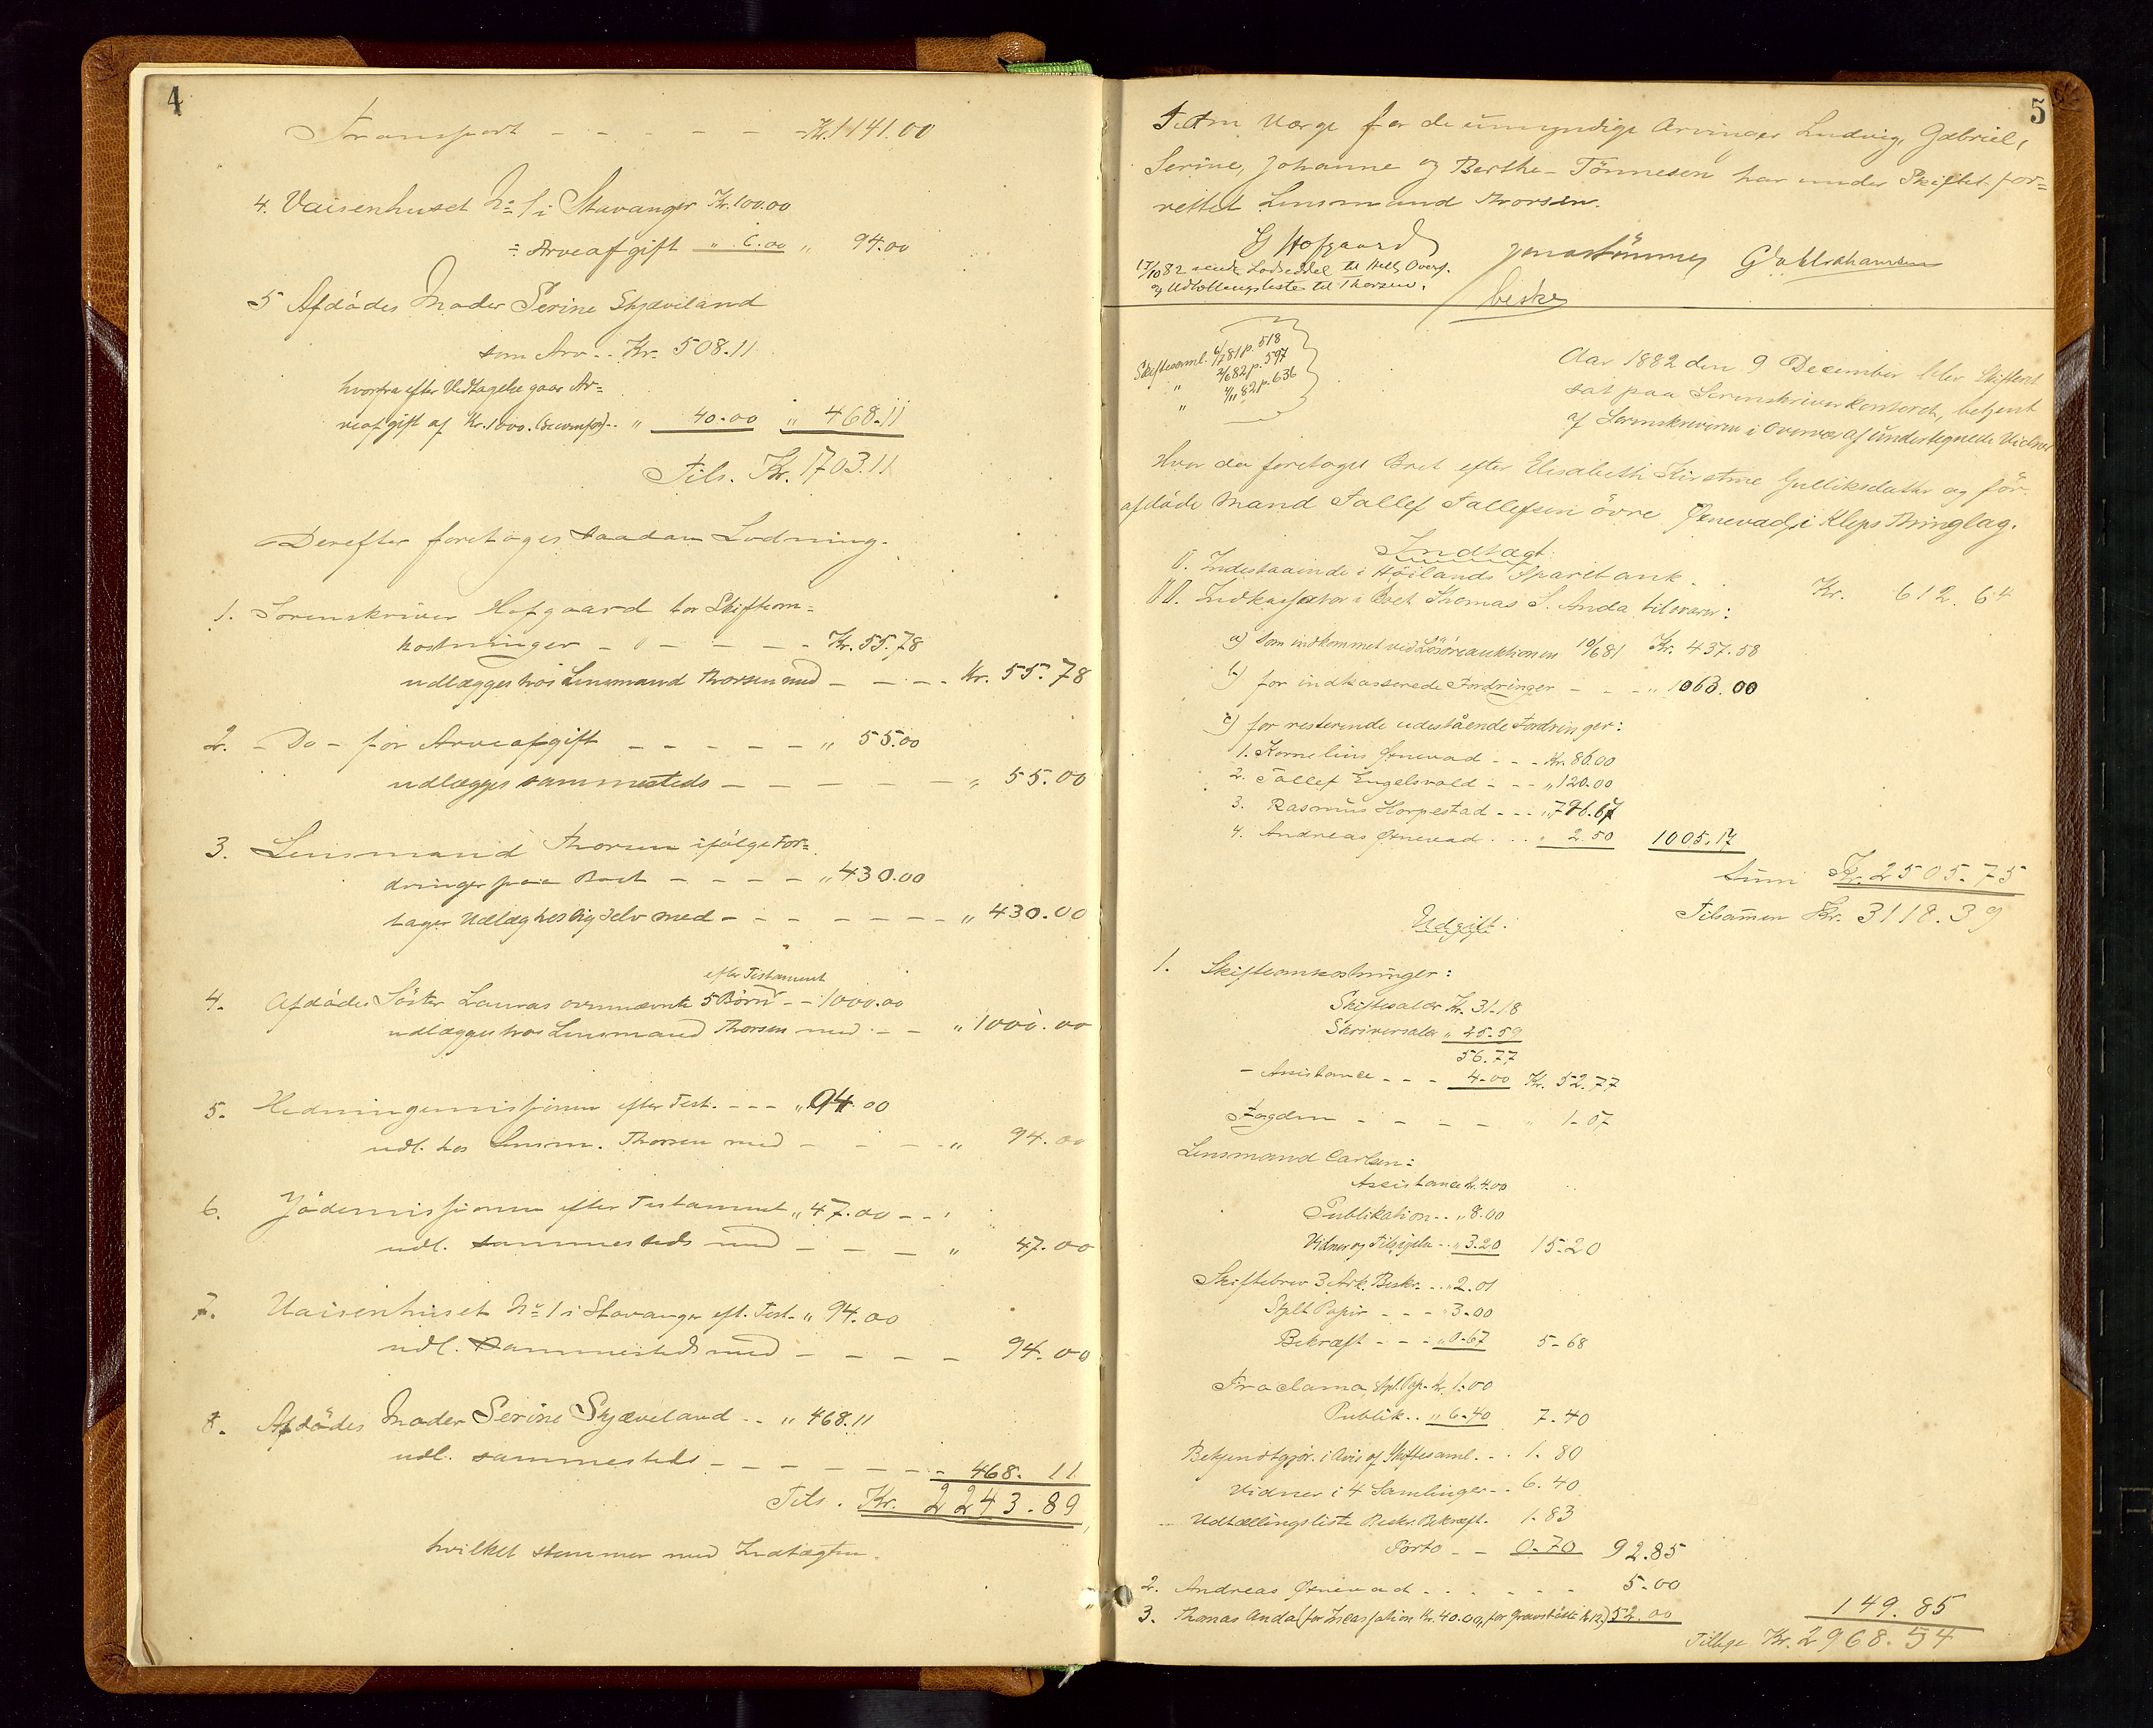 4
Transport - - - - - Kr. 1141.00
4. Vaisenhuset No 1 i Stavanger Kr. 100.00
÷ Arveafgift " 6.00 " 94.00
5 Afdødes Moder Serine Skjæveland
som Arv . . Kr. 508.11
hvorfra efter Vedtagelse gaar Ar=
veafgift af Kr. 1000. " 40.00 " 468.11
Tils. Kr. 1703.11
Derefter foretoges saadan Lodning.
1. Sorenskriver Hofgaard for Skifteom=
kostninger - - - - - Kr. 55.78
udlægges hos Lensmand Thorsen med - - - - Kr. 55.78
2. - Do - for Arveafgift - - - - - " 55.00
udlægges sammesteds - - - - - " 55.00
3. Lensmand Thorsen ifølge For=
dringer paa Boet - - - - " 430.00
tager Udlæg hos sig selv med - - - - - - - " 430.00
efter Testament
4. Afdødes Søster Lauras ovennævnte 5 Børn - - 1000.00
udlægges hos Lensmand Thorsen med - - " 1000.00
5. Hedningemissionen efter Test. - - - " 94.00
udl. hos Lensm. Thorsen med - - - - " 94.00
6. Jødemissionen efter Testament " 47.00 - -
udl. sammesteds med - - - " 47.00
7. Vaisenhuset No 1 i Stavanger eft. Test. " 94.00
udl. sammesteds med - - - - 94.00
8. Afdødes Moder Serine Skjæveland - - " 468.11
udl. sammesteds - - - - - - - 468.11
Tils. Kr. 2243.89
hvilket stemmer med Indtægten.
5
Som Værge for de umyndige Arvinger Ludvig, Gabriel,
Serine, Johanne og Berthe Tønnesen har under Skiftet for=
rettet Lensmand Thorsen.
G Hofgaard Jonas Tønnes G Abrahamsen
17/10 82 sendt Lodseddel til Overf.
og Udtællingsliste til Thorsen.
beskr
Skiftesaml. 6/7 81 p. 518
" 2/6 82 p. 597
" 4/11 82 p. 636
Aar 1882 den 9 December blev Skifteret
sat paa Sorenskriverkontoret, betjent
af Sorenskriveren i Overvær af undertegnede Vidner
Hvor da foretoges Boet efter Elisabeth Kirstine Gulliksdatter og før
afdøde Mand Tallef Tallefsen øvre Ørnevad i Kleps Thinglag.
Indtægt.
I. Indestaaende i Høilands Sparebank . . Kr. 612.64
II. Indkassator i Boet Thomas S. Anda tilsvarer:
a) som indkommet ved Løsøreauktionen 10/6 81 Kr. 437.58
b) for indkasserede Fordringer - - - " 1063.00
c) for resterende udestående Fordringer:
1. Kornelius Ørnevad - - - Kr. 86.00
2. Tallef Engelsvold - - - " 120.00
3. Rasmus Horpestad - - - " 796.67
4. Andreas Ørnevad . . . " 2.50 1005.17
Sum Kr. 2505.75
Tilsamen Kr. 3118.39
Udgift.
1. Skifteomkostninger:
Skiftesalær Kr. 31.18
Skriversalær " 25.59
56.77
- Assistance - - - 4.00 Kr. 52.77
Fogden - - - - - " 1.07
Lensmand Carlsen:
Assistance Kr. 4.00
Publikation . . " 8.00
Vidner og Tilsigelse - . " 3.20 15.20
Skiftebrev 3 Ark. Beskr. . . " 2.01
Stplt Papir - - - " 3.00
Bekræft - - - " 0.67 5.68
Proclama, Stpl. Pap. Kr. 1.00
Publik. . " 6.40 7.40
Bekjendtgjør. i Avis af Skiftesaml. - . 1.80
Vidner i 4 Samlinger - . 6.40
Udtællingsliste Beskr. Bekræft. 1.83
Porto - - 0.70 92.85
2. Andreas Ørnevad - . . - - - - 5.00
3. Thomas Anda (for Incassation Kr. 40.00, for Gravstøtte Kr 12.) 52.00 149.85
Tilbage Kr. 2968.54